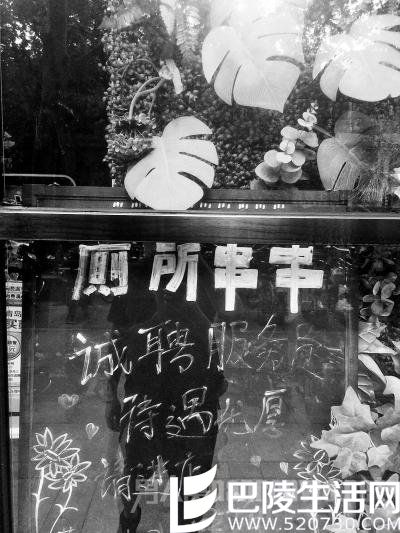 厕所串串
诚聘服务员
待遇优厚
请进店
巴陵生活网
WWW.520730.COM